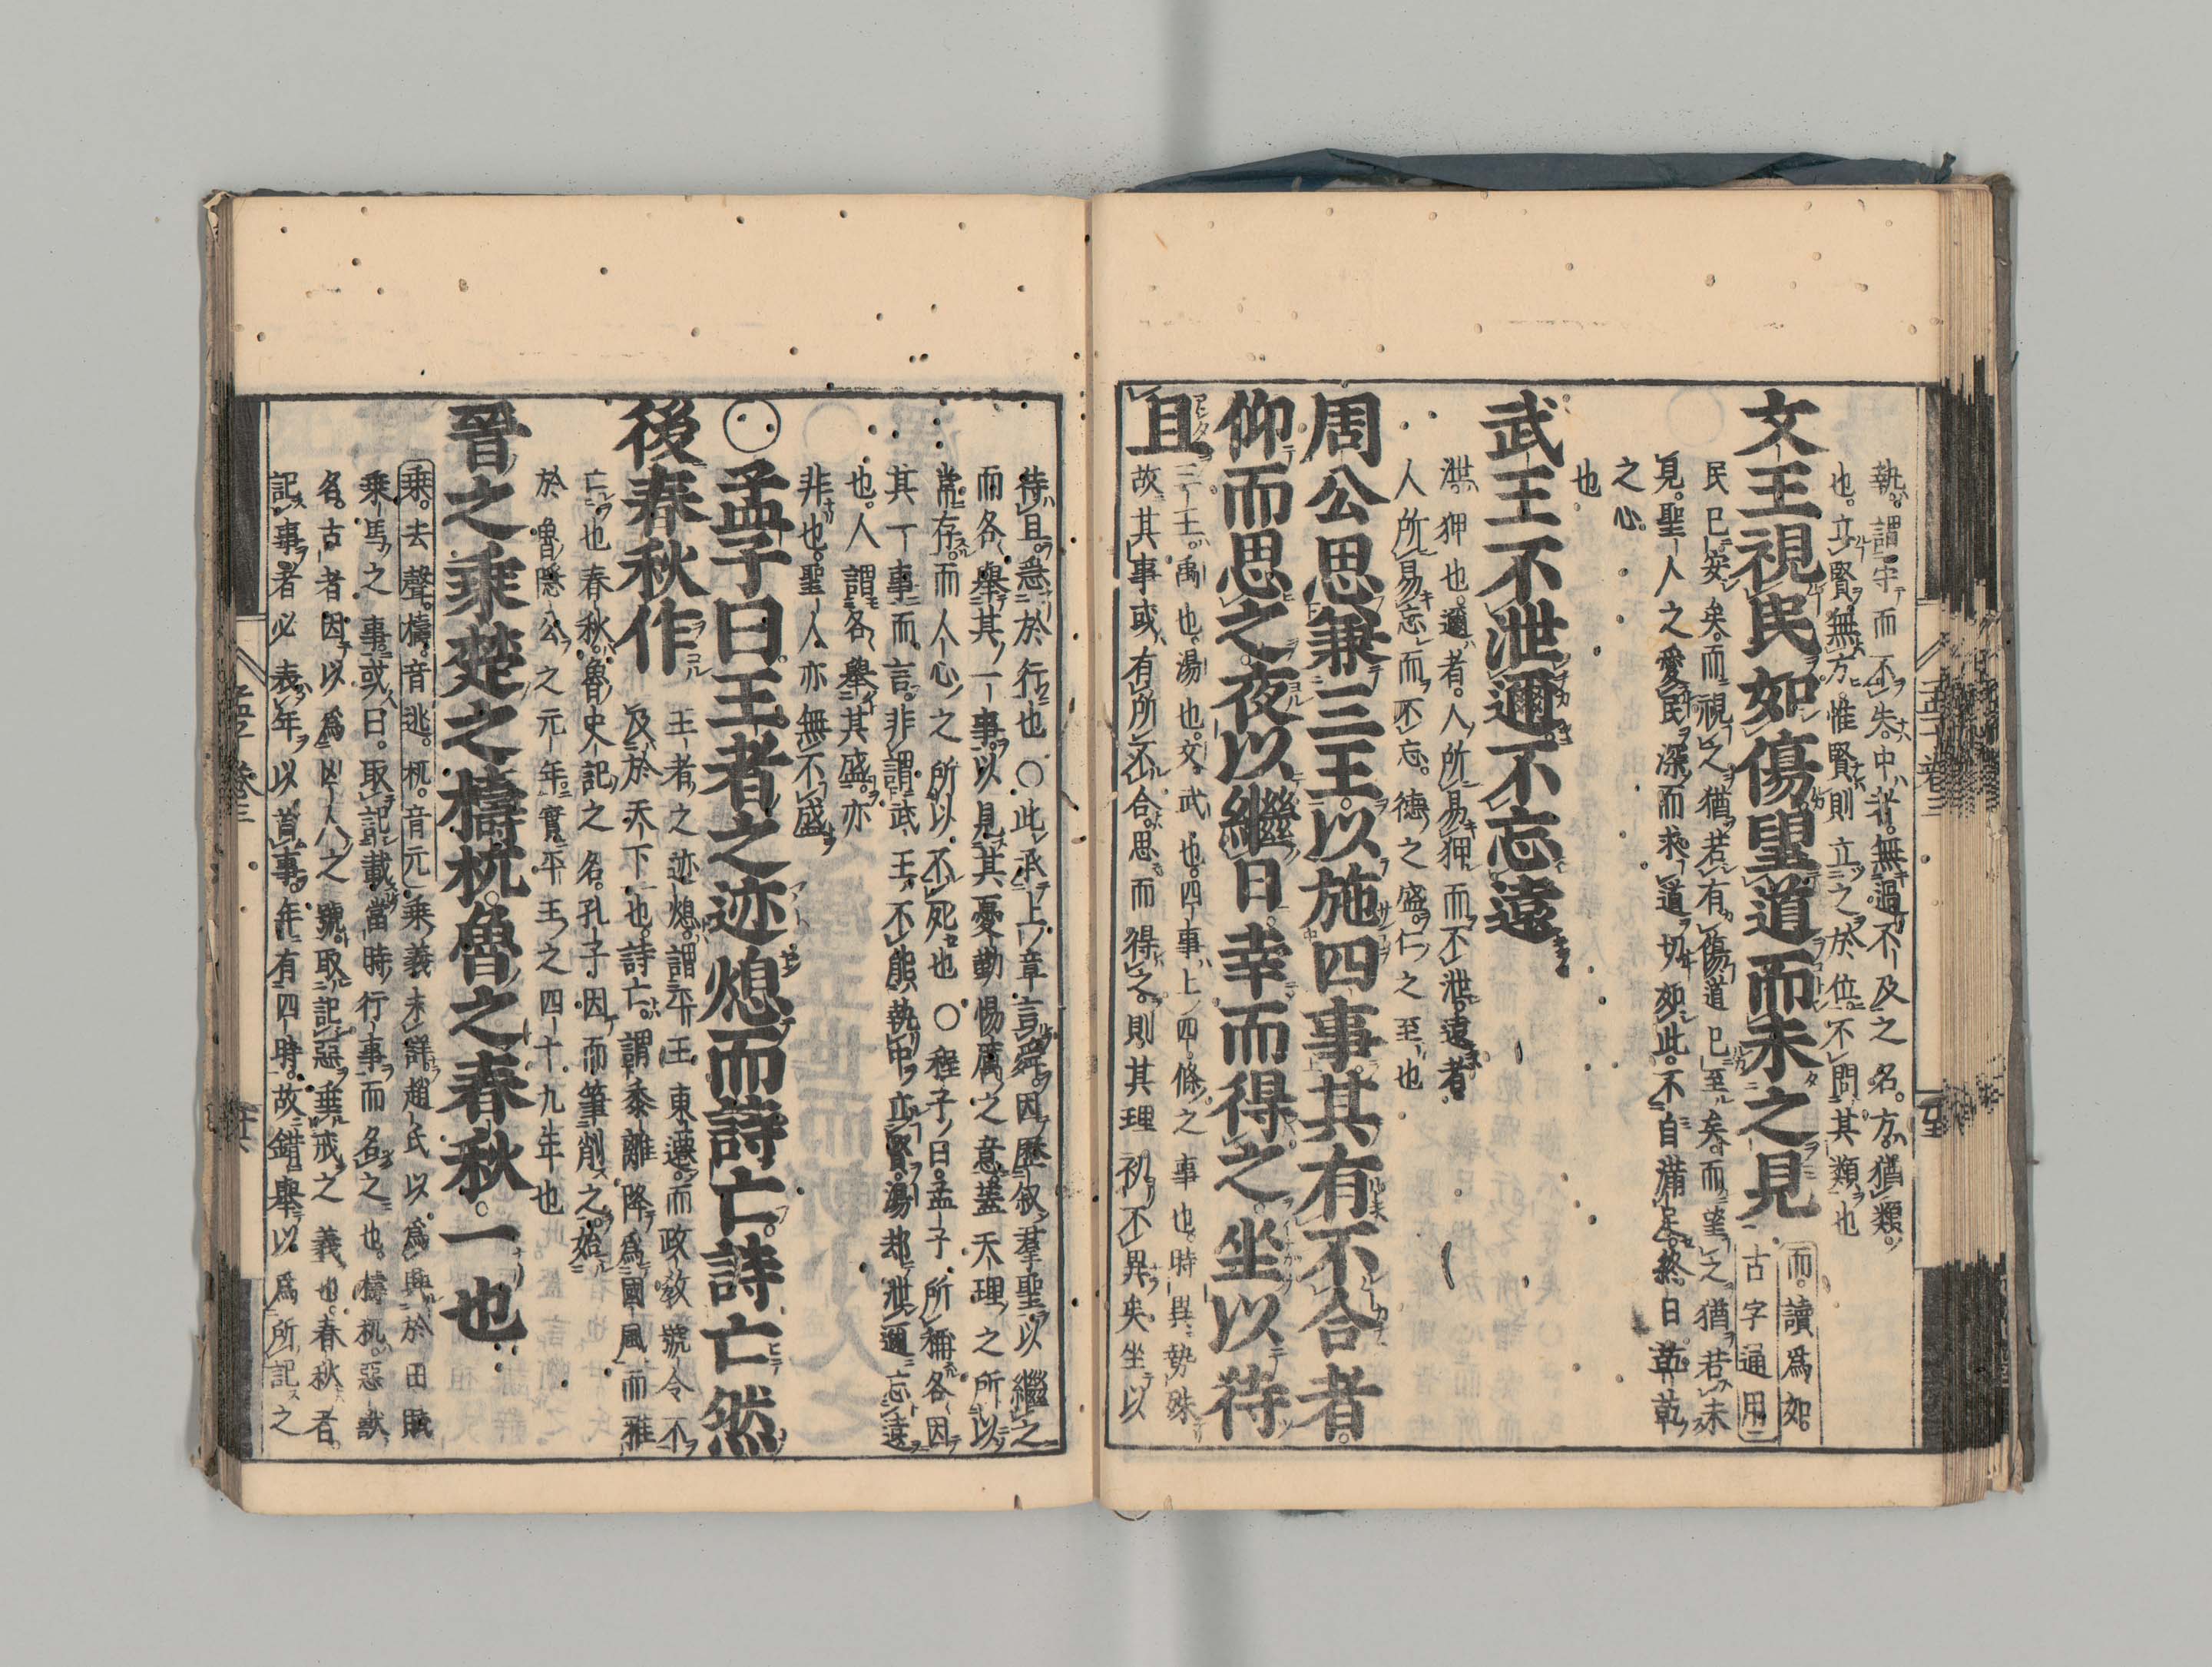 執。謂守而不失。中者。無過不及之名。方。猶類
也。立賢無方。惟賢則立之於位。不問其類也
文王視民如傷望道而未之見
而。讀爲如。
古字通用
民已安矣。而視之猶若有傷。道已至矣。而望之猶若未
見。聖人之愛民深而求道切如此。不自滿足。終日乾乾
之心
也
武王不泄邇不忘遠
泄。狎也。邇者。人所易狎而不泄。遠者。
人所易忘而不忘。德之盛。仁之至也
周公思兼三王。以施四事。其有不合者。
仰而思之。夜以繼日。幸而得之。坐以待
旦
三王。禹也。湯也。文武也。四事。上四條之事也。時異勢殊
故其事或有所不合。思而得之。則其理初不異矣。坐以
待旦。急於行也○此承上章言舜。因歷叙羣聖以繼之
而各舉其一事。以見其憂勤惕厲之意。蓋天理之所以
常存。而人心之所以不死也○程子曰。孟子所稱。各因
其一事而言。非謂武王不能執中立賢。湯却泄邇忘遠
也。人謂各舉其盛。亦
非也。聖人亦無不盛
○孟子曰。王者之迹熄而詩亡。詩亡然
後春秋作
王者之迹熄。謂平王東遷。而政教號令不
及於天下也。詩亡。謂黍離降爲國風而雅
亡也。春秋。魯史記之名。孔子因而筆削之。始
於魯隱公之元年。實平王之四十九年也
晉之乘楚之檮杌。魯之春秋。一也
乘。去聲。檮。音逃。杌。音兀。乘義未詳。趙氏以爲興於田賦
乘馬之事。或曰。取記載當時行事而名之也。檮杌。惡獸
名。古者因以爲凶人之號。取記惡垂戒之義也。春秋者。
記事者必表年以首事。年有四時。故錯舉以爲所記之